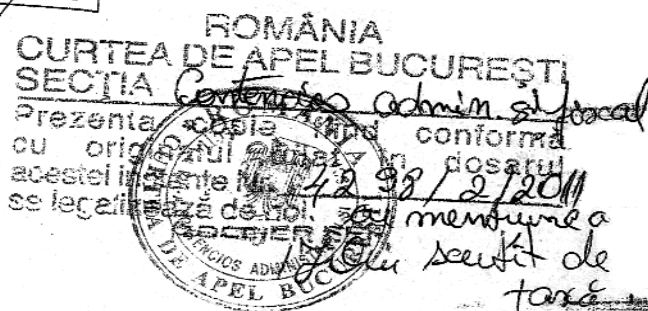 ROMÂNIA
CURTEA DE APEL BUCUREȘTI
SECȚIA Contencios admin. și fiscal
Prezenta copie fiind conformă
cu originalul aflat în dosarul
acestei instanțe Nr. 4298/2/2011
se legalizează de noi. cu mențiunea
GREFIER
scutit de
taxă
CURTEA DE APEL BUCUREȘTI
CONTENCIOS ADMINISTRATIV